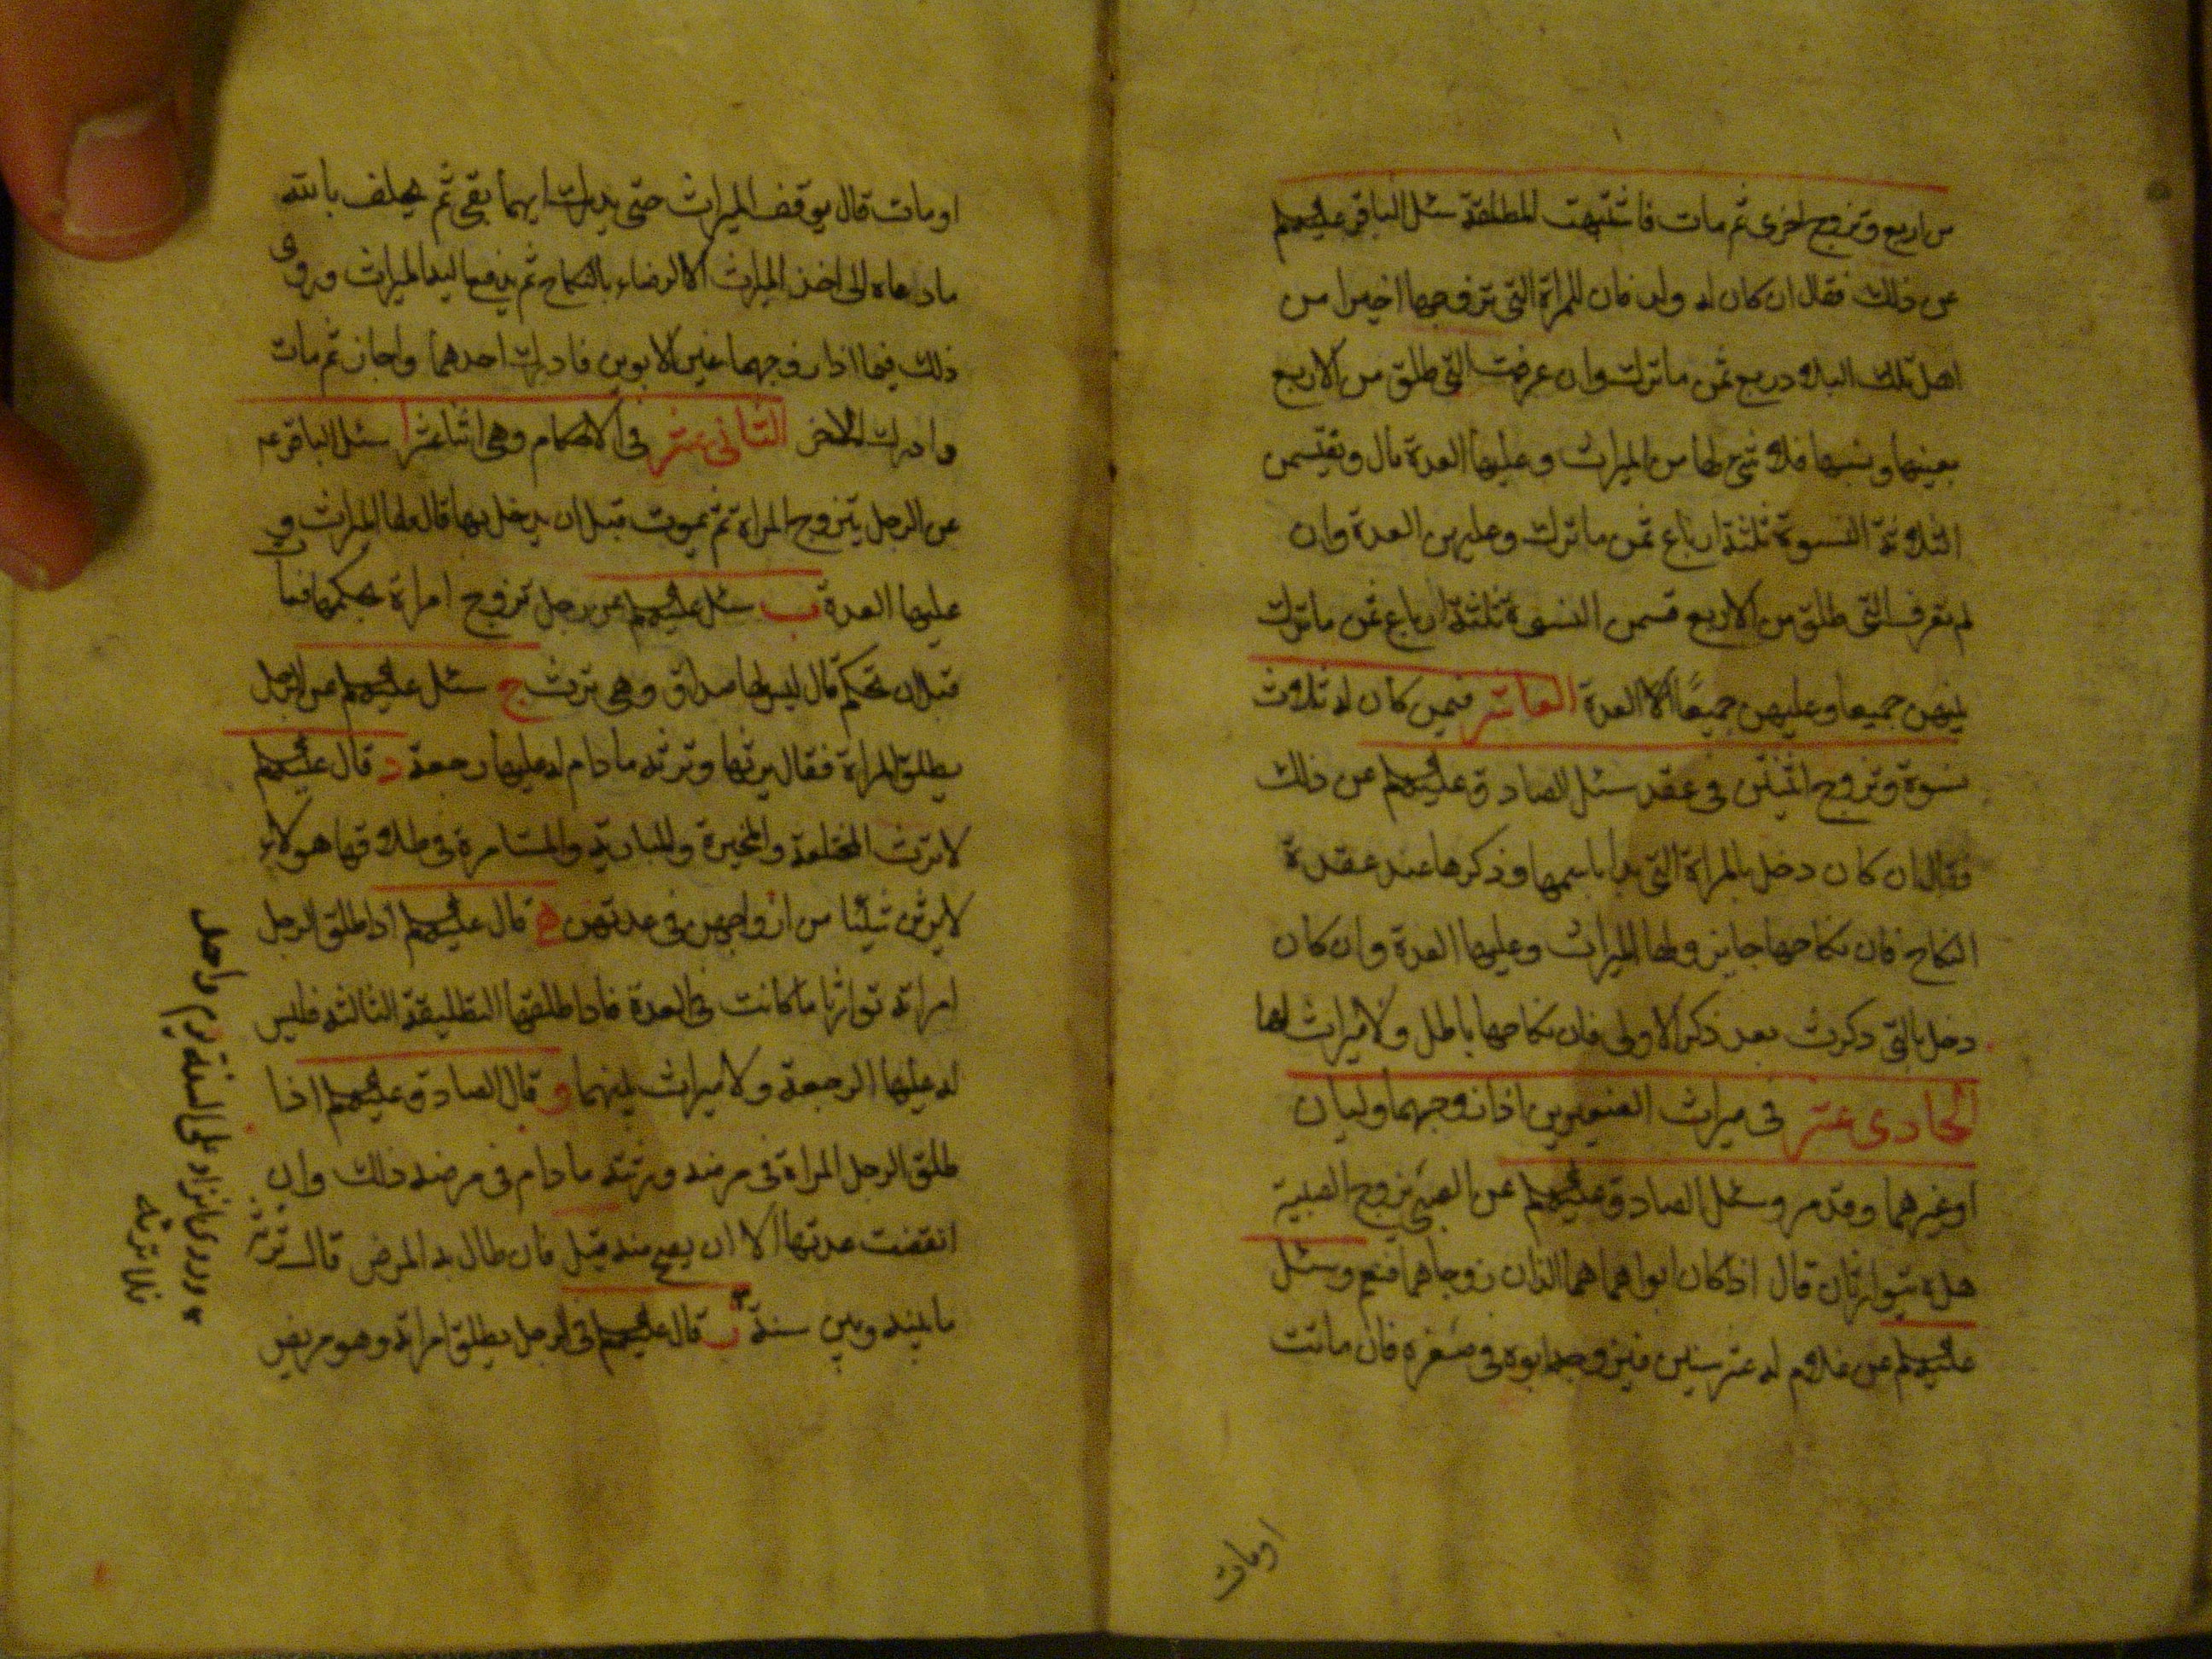 من اربع وتزوج اخرى ثم مات فاشتبهت المطلقة سئل الباقر عليهم
عن ذلك فقال ان كان له ولد فان للمراة التى تزوجها اخيرا من
اهل تلك البلاد ربع ثمن ما ترك وان عرفت التى طلق من الاربع
بعينها ونسبها فلا شئ لها من الميراث وعليها العدة قال ويقتسمن
الثلاثة النسوة ثلثة ارباع ثمن ما ترك وعليهن العدة وان
لم تعرف التى طلق من الاربع قسمن النسوة ثلثة ارباع ثمن ما ترك
بينهن جميعا وعليهن جميعًا العدة العاشر فيمن كان له ثلاث
نسوة وتزوج اثنتين فى عقد سئل الصادق عليهم عن ذلك
فقال ان كان دخل بالمراة التى بدا باسمها وذكرها عند عقدة
النكاح فان نكاحها جايز ولها الميراث وعليها العدة وان كان
دخل بالتى ذكرت بعد ذكر الاولى فان نكاحها باطل ولا ميراث لها
الحادى عشر فى ميراث الصغيرين اذا زوجهما وليان
او غيرهما وقد مر وسئل الصادق عليهم عن الصبى يزوج الصبية
هل يتوارثان قال اذا كان ابواهما هما اللذان زوجاهما فنعم وسئل
عليهم عن غلام له عشر سنين فيزوجه ابوه فى صغره فان ماتت
او مات
او مات قال يوقف الميراث حتى يدرك ايهما بقى ثم يحلف بالله
ما دعاه الى اخذ الميراث الا الرضاء بالنكاح ثم يدفع اليه الميراث وروى
ذلك فيما اذا زوجهما غير الابوين فادرك احدهما واجاز ثم مات
وادرك الاخر الثانى عشر فى الاحكام وهى اثنا عشر ا سئل الباقر عه
عن الرجل يتزوج المراة ثم يموت قبل ان يدخل بها قال لها الميراث و
عليها العدة ب سئل عليهم عن رجل تزوج امراة بحكمها فمات
قبل ان تحكم قال ليس لها صداق وهى ترث ج سئل عليهم عن الرجل
يطلق المراة فقال يرثها وترثه ما دام له عليها رجعة د قال عليهم
لا ترث المختلعة والمخيرة والمبارية والمستامرة فى طلاقها هولاء
لا يرثن شيئا من ازواجهن فى عدتهن ه قال عليهم اذا طلق الرجل
امراته توارثا ما كانت فى العدة فاذا طلقها التطليقة الثالثة فليس
له عليها الرجعة ولا ميراث بينهما و قال الصادق عليهم اذا
طلق الرجل المراة فى مرضه ورثته ما دام فى مرضه ذلك وان
انقضت عدتها الا ان يصح منه قيل فان طال به المرض قال ترثه
ما بينه وبين سنة ز قال عليهم فى الرجل يطلق امراته وهو مريض
وروى ما زاد على السنة يوم واحد
فلا ترثه